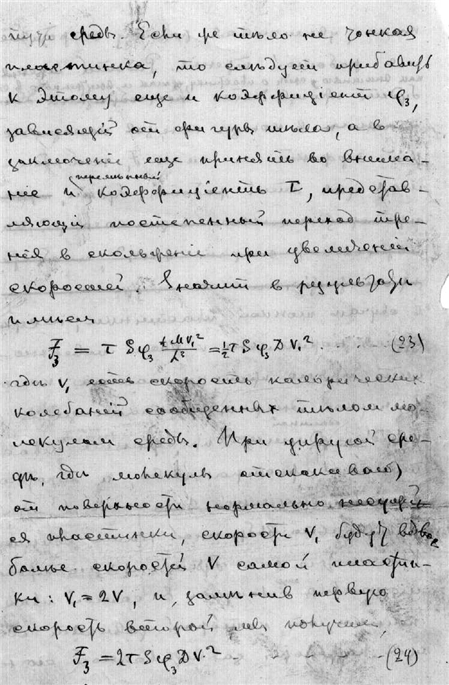 среды. Если же тѣло не тонкая
пластинка, то слѣдует прибавить
к этому еще и коэффиціент φ₃,
зависящій от фигуры тѣла, а в
заключеніе еще принять во внима-
ніе и перемѣнный коэффиціентъ τ, представ-
ляющій постепенный переход тре-
нія в скольженіе при увеличеніи
скоростей. Значит в результате
имѣем
F₃ = τSφ₃ MV₁²/L³ = ½τSφ₃DV₁² . . . (23)
гдѣ V₁ есть скорость калорических
колебаній сообщенных тѣлом мо-
лекулам среды. При упругой сре-
дѣ, гдѣ молекулы отскакивают
от поверхности нормально несущей-
ся пластинки, скорость V₁ будет вдвое
болѣе скорости V самой пластин-
ки: V₁ = 2V, и, замѣнив первую
скорость второй получим
F₃ = 2τSφ₃DV² - (24)